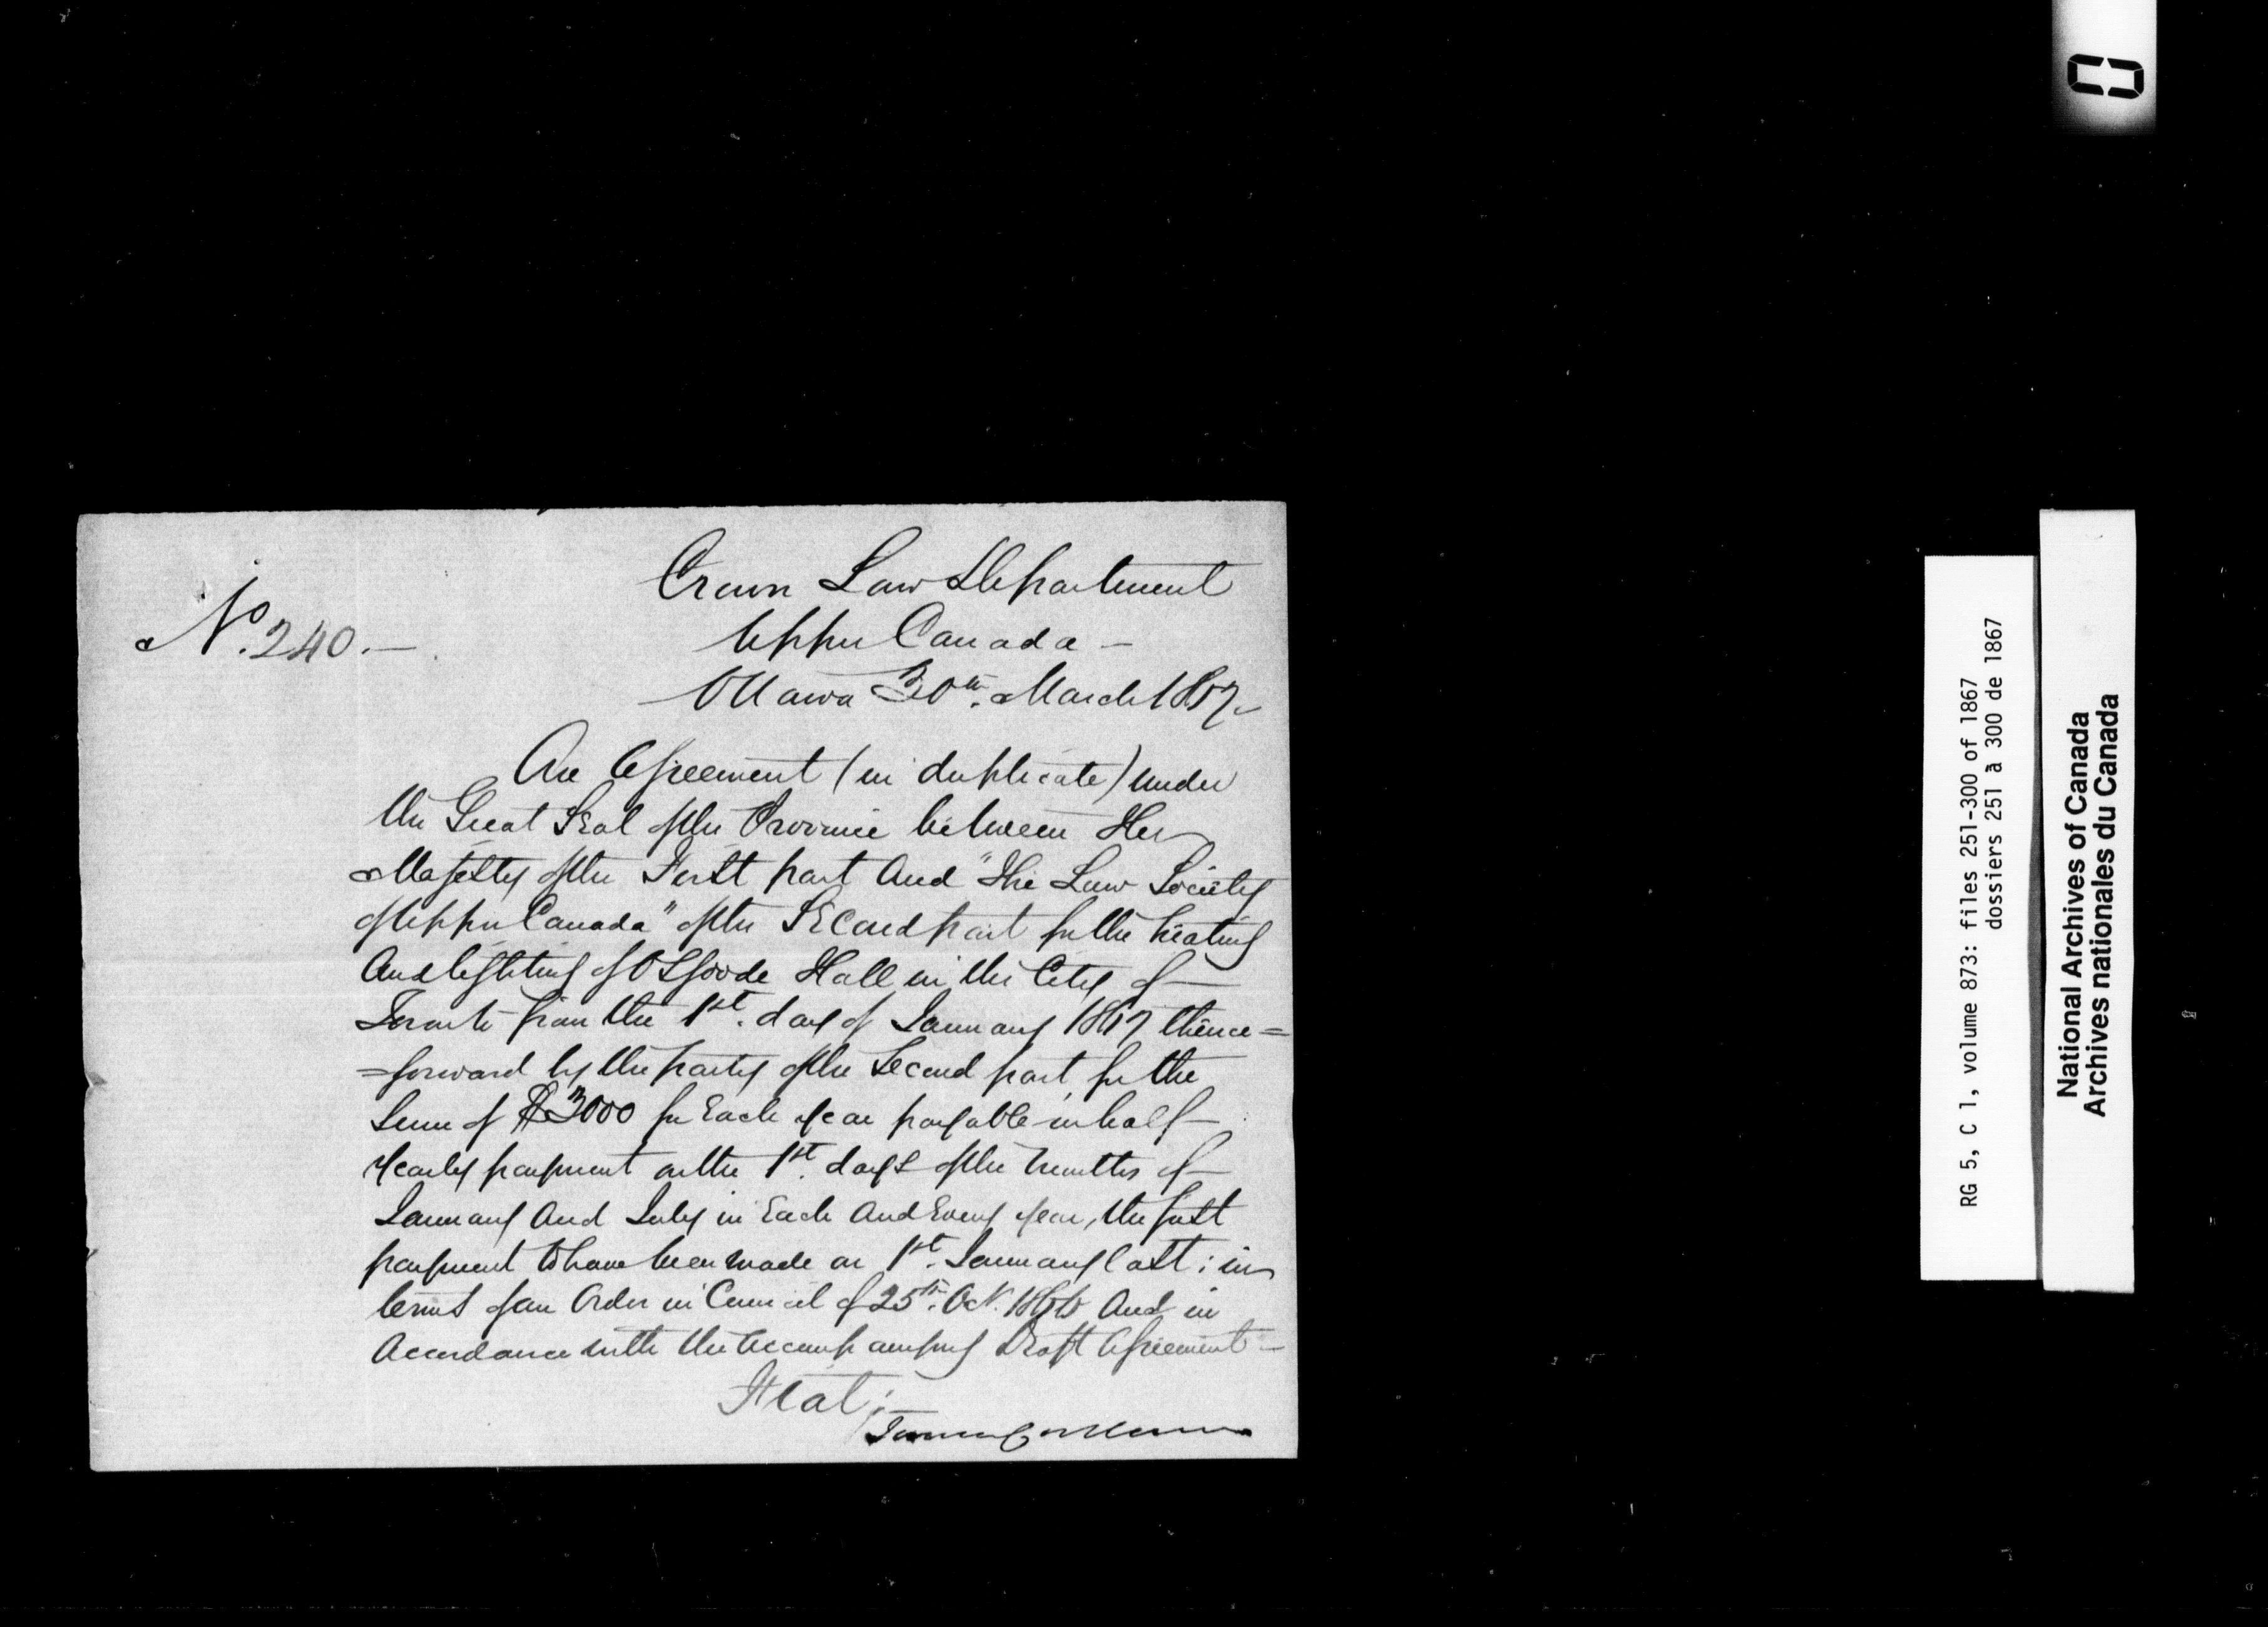 No. 240.—
Crown Law Department
Upper Canada —
Ottawa 30th. March 1867.
An Agreement (in duplicate) under
the Great Seal of the Province between Her
Majesty of the First part And "The Law Society
of Upper Canada" of the Second part for the heating
And lighting of Osgoode Hall in the City of
Toronto from the 1st. day of January 1867 thence=
=forward by the party of the Second part for the
Sum of $3000 for Each year payable in half
Yearly payment on the 1st. days of the months of
January And July in Each And Every year, the first
payment to have been made on 1st. January last; in
terms of an Order in Council of 25th. Oct. 1866 And in
Accordance with the Accompanying Draft Agreement—
Fiat;—
RG 5, C 1, volume 873: files 251-300 of 1867
dossiers 251 à 300 de 1867
National Archives of Canada
Archives nationales du Canada